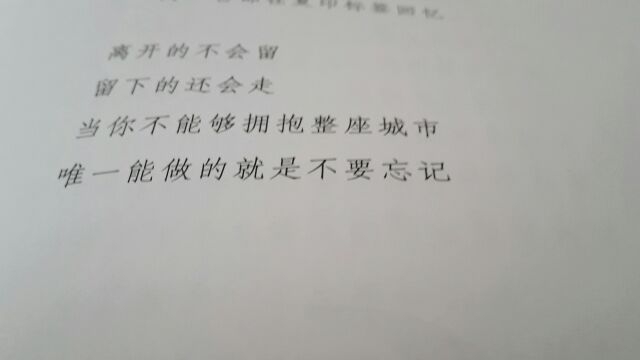 复印标签回忆
离开的不会留
留下的还会走
当你不能够拥抱整座城市
唯一能做的就是不要忘记